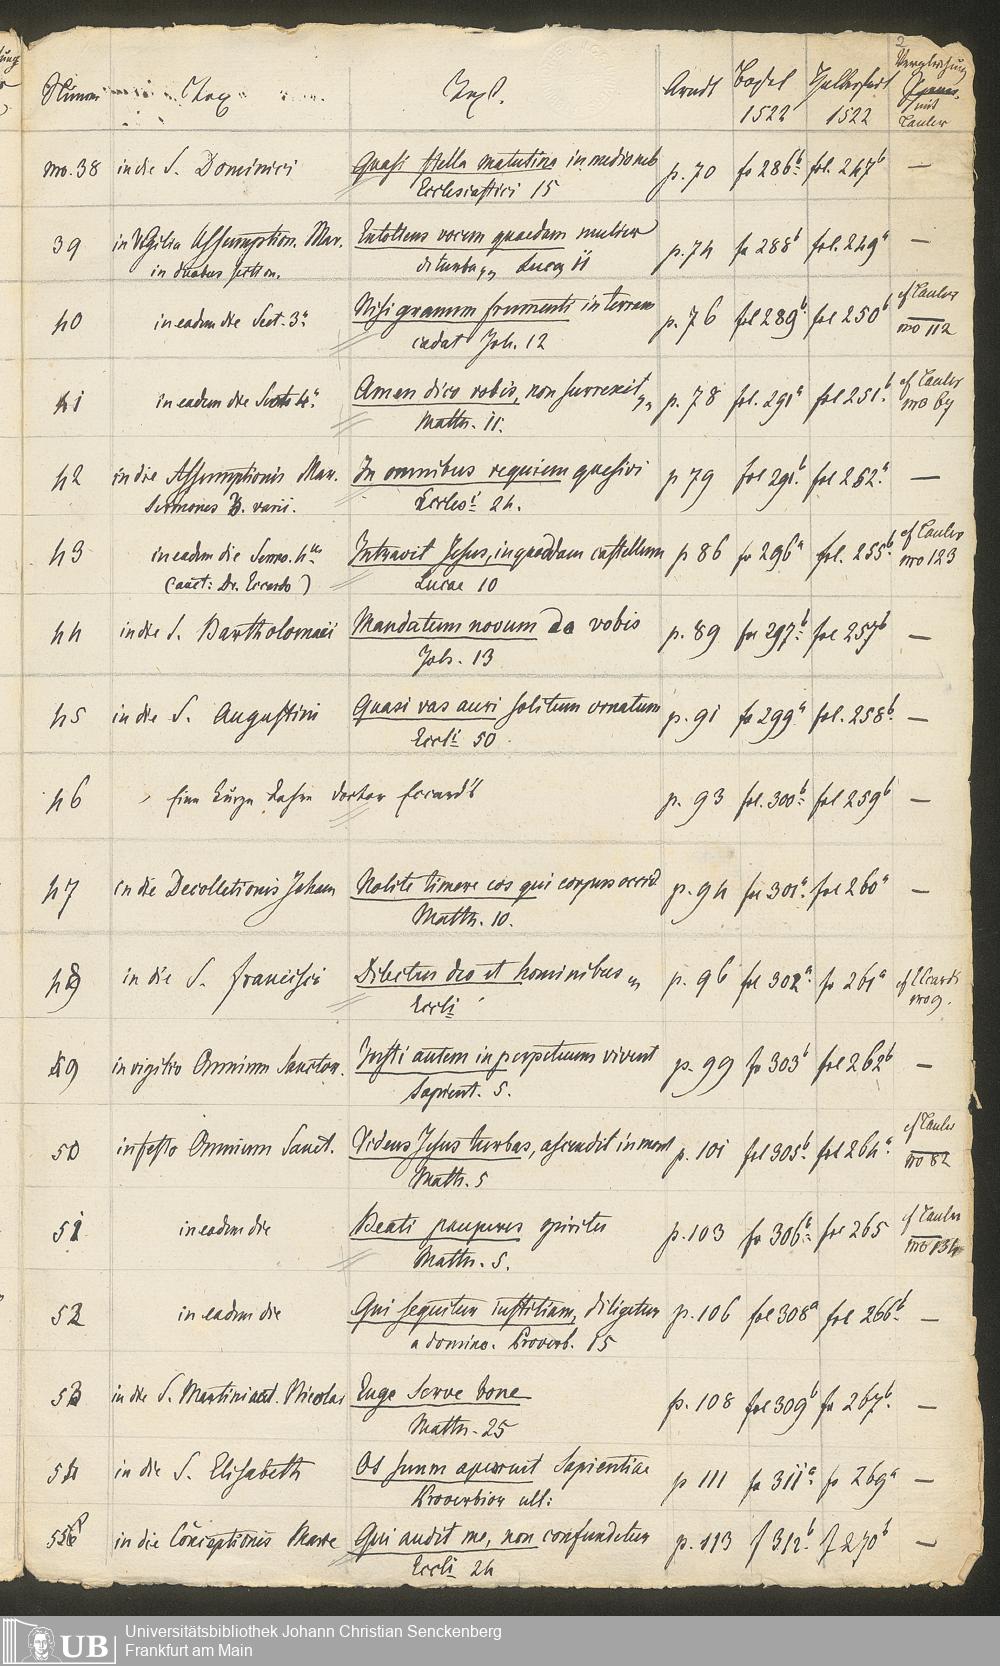 2
Numeri Tag Text. Arndt Basel 1522 Halberstadt 1522 Vergleichung mit Tauler
no. 38 in die S. Dominici Quasi stella matutina in medio neb p. 70 fo 286b. fol. 247b —
Ecclesiastici 15
39 in Vigilia Assumption. Mar. Extollens vocem quaedam mulier p. 74 fo 288b fol. 249a —
in duabus section. de turba Lucae 11
40 in eadem die Sect. 3a. Nisi granum frumenti in terram p. 76 fol 289b. fol 250b cf Tauler
cadat Joh. 12 no 112
41 in eadem die 4a. Amen dico vobis, non surrexit p. 78 fol. 291a fol 251.b cf Tauler
Matth. 11. no 67
42 in die Assumptionis Mar. In omnibus requiem quesivi p 79 fol 291.b fol 252.a —
Sermones 3. varii. Eccles. 24.
43 in eadem die Sermo. 4us Intravit Jesus, in quoddam castellum p 86 fo 296a fol. 255b cf Tauler
(auct: Dr. Eccardo) Lucae 10 no 123
44 in die S. Bartholomaei Mandatum novum do vobis p. 89 fol 297b fol 257b —
Joh. 13
45 in die S. Augustini Quasi vas auri solitum ornatum p. 91 fo 299a fol. 258b. —
Eccli 50
46 Eine kurze Lehre doctor Eccard's p. 93 fol. 300b. fol 259b —
47 in die Decolletionis Johann Nolite timere eos qui corpus occid. p. 94 fol 301a. fol 260a —
Matth. 10.
48 in die S. Francisci Dilectus deo et hominibus p. 96 fol 302a. fo 261a cf Eccardi
Eccli no 9.
49 in vigilia Omnium Sanctor. Justi autem in perpetuum vivent p. 99 fo 303b fol 262b —
Sapient. 5.
50 in festo Omnium Sanct. Videns Jesus turbas, ascendit in mont p. 101 fol 305b. fol 264a. cf Tauler
Matth. 5 no 82
51 in eadem die Beati pauperes spiritu p. 103 fo 306b. fol 265 cf Tauler
Matth. 5. no 134
52 in eadem die Qui sequitur iustitiam, diligetur p. 106 fol 308a fol 266b. —
a domino. Proverb. 15
53 in die S. Martini aut. Nicolas Euge serve bone p. 108 fol 309b fo 267b. —
Matth. 25
54 in die S. Elisabeth Os suum aperuit Sapientiae p 111 fo 311a. fo 269a —
Proverbior ult:
55 in die Conceptionis Marie Qui audit me, non confundetur p. 113 f 312.b f 270b —
Eccli 24
UB Universitätsbibliothek Johann Christian Senckenberg
Frankfurt am Main